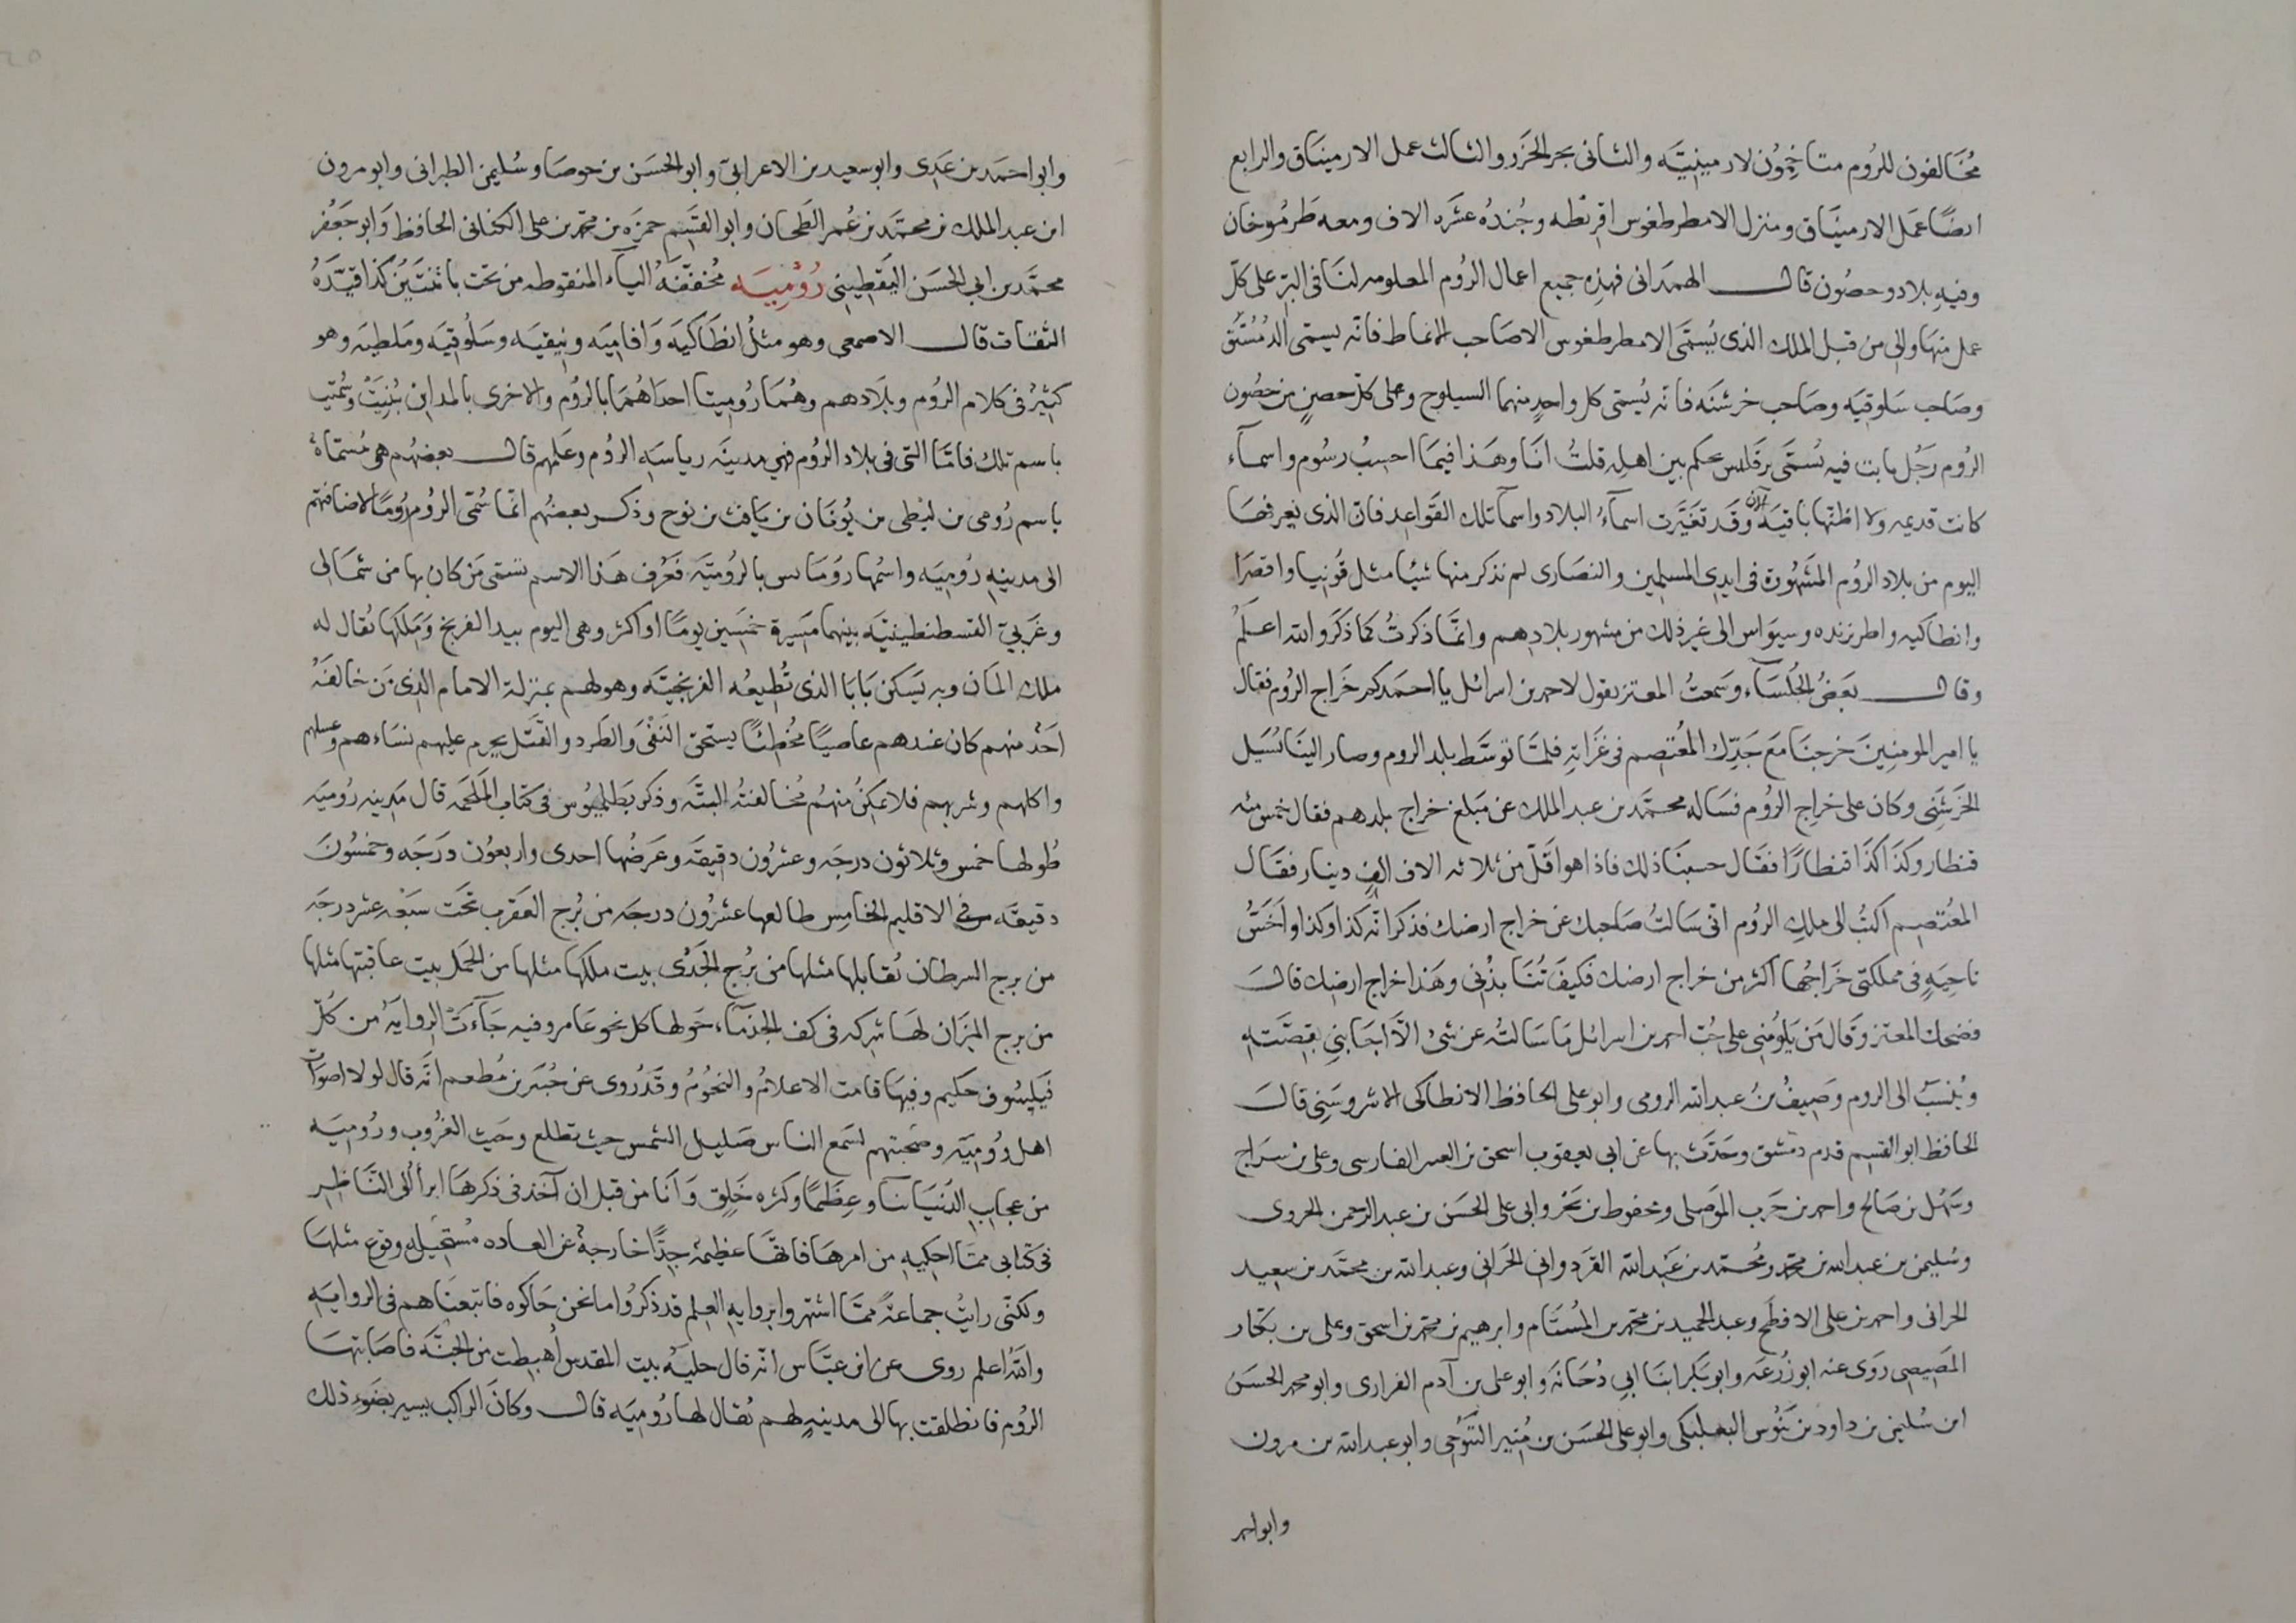 مُخَالفون للرُوم متاخِمُون لارمينيَّه والثانى بحر الخَزَر والثالث عمل الارمينيَاق والرابع
ايضًا عَمل الارمنيَاق ومنزل الامطرطغوس اقريطه وجُندُه عشَره الاف ومعه طرمُوخان
وفيهِ بلاد وحصُون قال الهمدانى فهذِه جميع اعمال الرُوم المعلومه لنَا فى البرّ على كلّ
عمل منهَا والى من قبل الملك الذى يُسمَّى الامطرطغوس الا صَاحب الانماط فانّه يسمى الدُمُسْتُق
وصَاحب سَلوقيَه وصَاحب خرشنَه فانّه يُسمّى كل واحدٍ منهما السيلوج وعلى كلّ حصنٍ من حصُون
الرُوم رَجُل ثابت فيه يُسَمَّى برقليس يحكم بين اهلِه قلتُ انَا وهَذا فيمَا احسِبُ رسُوم واسمآء
كانت قديمه ولا اظنّها باقيَه الان وقَد تغيَّرت اسمآءُ البلاد واسمآ تلك القَواعِد فان الذى يَعرفهَا
اليوم من بلاد الرُوم المشهُورة فى ايدى المسلمين والنصَارى لم نذكر منها شيئا مثل قُونيا واقصَرا
وانطاكيه واطربزنده وسيوَاس الى غير ذلك من مشهور بلادِهم وانّما ذكرتُ كما ذكرَ والله اعلَمُ
وقال بعَضُ الجُلسَآء وسَمعتُ المعتز يقول لاحمد بن اسرائل يا احمَد كم خَراج الرُوم فقال
يا امير المومنِينَ خرجنَا مَعَ جَدِّك المعُتصِم فى غَزَاتِه فلمّا توسَّط بلد الروم وصَار الينَا بُسَيل
الخَرَشَنِى وكان على خراج الرُوم فسَاله محمَّد بن عبد الملك عن مَبلغ خراج بلدهم فقال خمس مئه
قنطار وكذَا كذَا قنطارًا فقَال حسبنَا ذلك فاذا هو اقَلّ من ثلاثه الاف الفِ دينار فقَال
المعُتصِم اكتبُ الى ملكِ الرُوم انى سَالتُ صَاحبك عن خراج ارضك فذكر انّه كذا وكذا واَخَسُّ
ناحيَهٍ فى مملكتى خَراجُها اكثر من خراج ارضك فكيفَ تُنَابذُنى وهَذا خراج ارضِك قالَ
فضحك المعتز وقَال مَن يَلوُمُنى على حُبّ احمد بن اسرائل مَا سَالتُه عن شىْ الّا اجَابنِى بقصَّتِه
ويُنسَبُ الى الروم وَصِيفُ بنُ عبد الله الرومى وابو على الحافظ الانطاكى الاشروسَنِى قالَ
الحافظ ابو القسِم قدم دمشق وحَدَّث بها عن ابى يعقوب اسحق بن العنبر الفارسى وعلى بن سرَاج
وسَهْل بن صَالح واحمد بن حَرب الموَصِلى ومحفوط بن بَحْر وابى على الحَسَن بن عبد الرحمن الجروى
وسُليمن بن عبد الله بن محمَّد ومُحمَّد بن عَبْد الله القَردُوانى الحَرانى وعبد الله بن محمَّد بن سعِيد
الحرانى واحمد بن على الافطَح وعبد الحميد بن محمَّد بن المُستَام وابرهيم بن محمّد بن اسحق وعلى بن بكّار
المَصِيصى رَوى عنه ابو زُرعَه وابو بَكر ابنَا ابى دُجَانَه وابو على بن آدم الفزارى وابو محمد الحَسَنُ
ابن سُليمن بن داود بن بَنُوس البعلبكى وابو على الحسَن بن مُنِير التَنَوُخِى وابو عبد الله بن مرون
وابو احمد
وابو احمَد بن عَدِى وابو سعيد بن الاعرابىّ وابو الحَسَن بن حوصَا وسُليمن الطبرانى وابو مرون
ابن عبد الملك بن محمَّد بن عُمر الطَحان وابو القَسِم حمزَه بن محمّد بن على الكنانى الحافظ وَابو جَعْفر
محمَّد بن ابى الحَسَن اليَقطِينى رُوْمِيَه مُخففَّهُ اليآء المنقوطه من تحت باثنَتَيْن كذا قيَّدَهُ
الثقات قال الاصمعى وهو مثلُ انطَاكيَه وَافاميَه ونِيقيَه وسَلُوقيَه ومَلَطيَه وهو
كثيرٌ فى كلام الرُوم وبلادهم وهُمَا رُوميتا احداهُمَا بالرُوم والاخرى بالمداين بُنِيَتْ وسُمّيت
باسم تلك فامَّا التى فى بلاد الرُوم فهى مدينَه رياسَهِ الروُم وعلمهم قال بعضهُم هى مُسَمَّاة
باسم رُومى بن لنطى بن يُونَان بن يَافث بن نوح وذكر بعضهُم انّما سُمّى الرُوم رُومًا لاضَافتهم
الى مدينهِ رُوميَه واسمُها رُومَانس بالرُوميَّه فعُرّب هَذا الاسم فسمّى مَن كان بها من شمَالى
وغَربىّ القسطنطينيَّه بينهما مَسِيرة خمَسين يومًا او اكثر وهى اليوم بيد الفرنج وَمَلكهَا يُقال له
ملك المَان وبه يَسكن بَابَا الذى تُطِيعُه الفرنجيَّه وهو لهم بمنزلة الامام الذى مَن خالفَهُ
اَحَدٌ منهم كان عندهم عاصيًا مخُطئًا يستحق النَفْىَ والطَرد والقَتل يحرم عليهم نسَاءهم وغسلهم
واكلهم وشربهم فلا يمكِنُ منهُم مُخالفتُه البتَّه وذكر بَطلميُوس فى كتاب المَلحَمَه قال مَدينه رُوميَه
طُولها خمس وثلاثون درجَه وعشرُون دقيقَه وعَرضُها احدى واربعُون درَجَه وخمسُونَ
دقيقَه فى الاقليم الخامِس طالعها عشرُون درجَه من بُرج العقرَب تحَت سَبعْه عشر درجَه
من برج السرطان يُقابلها مثلها من بُرج الجَدْى بيت ملكهَا مثلها من الحَمل بيت عاقبتها مثلها
من برج الميزَان لهَا شِركه فى كف الجذمآء حَولها كل نحو عَامر وفيه جَآءتَ الرِوايَهُ من كُلّ
فَيَليسُوفٍ حَكيم وفيهَا قامت الاعلامُ والنجوُمُ وقَد رُوى عن جُبَير بن مُطعم انّه قال لولا اصوَاتُ
اهل رُوميَّه وضَجتهم لسَمع الناس صَليل الشمس حيث تطلع وحَيث تغرُب ورُوميَه
من عجايب الدُنيَا بنآ وعِظَمًا وكثره خَلقٍ وَاَنَا من قبل ان آخذ فى ذكرهَا ابرأ الى النَاظِرِ
فى كتابى ممّا احكيهِ من امرهَا فانهَّا عظيمَهٌ جِدًّا خارجهٌ عن العاده مُستَحِيله وقوع مثلهَا
ولكنّى رايتُ جماعَهً ممّن اشتهروا بروايهِ العِلم قد ذكرُوا ما نحن حَاكوه فاتبعنَاهم فى الروايَهِ
واللهُ اعلم روى عن ابن عبَّاس انّه قال حليَهُ بيت المقدس اُهبِطت من الجنَّه فاصَابتهَا
الرُوم فانطلقت بها الى مدينهٍ لهم يُقال لها رُوميَه قال وكانَ الراكبُ يسير بضَوءِ ذلك